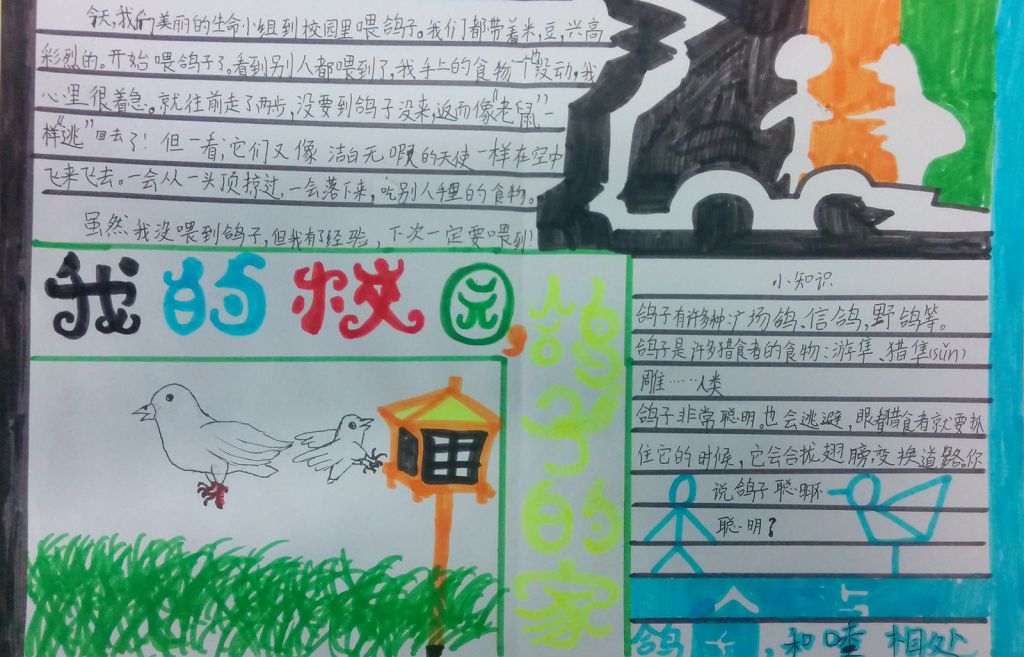 今天,我们美丽的生命小组到校园里喂鸽子。我们都带着米,豆,兴高
彩烈的。开始喂鸽子了。看到别人都喂到了,我手上的食物一点没动,我
心里很着急。就往前走了两步,没要到鸽子没来,返而像“老鼠”一
样“逃”回去了!但一看,它们又像洁白无暇的天使一样在空中
飞来飞去。一会从一头顶掠过,一会落下来,吃别人手里的食物。
虽然我没喂到鸽子,但我有了经验,下次一定要喂到!
我的校园,
鸽子的家
小知识
鸽子有许多种:广场鸽、信鸽,野鸽等。
鸽子是许多猎食者的食物:游隼、猎隼(sǔn)
雕……人类
鸽子非常聪明。也会逃避,眼看猎食者就要抓
住它的时候,它会合拢翅膀,变换道路。你
说鸽子聪明不
聪明?
人与
鸽 和睦相处